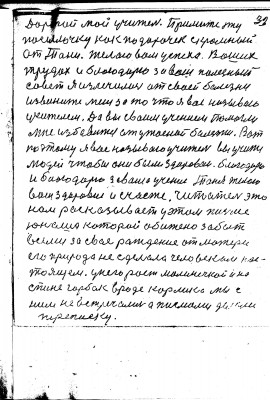 39
Дорогой мой учител. Примите эту
посылочку как подарочек скромный
от Тани. Желаю вам успеха. В ваших
трудах и благодарю за ваш полезный
совет я излечился от своей болезни
извините меня за то что я вас называю
учителем. Да вы своим учением помогли
мне избавится от ужасной болезни. Вот
поэтому я вас называю учител вы учите
людей чтобы они были здоровы.
и благодарю за ваше учение Таня желаю
вам здоровие и счасте. Читател это
нам рассказывает устой
юноша которой обижено забыт
всеми за свое раждение от матери
его природа не сделала человеком нас-
тоящем. унего рост малинечкой и на
спине горбок вроде кормика мы с
ним не встречались а писмами держли
переписку.